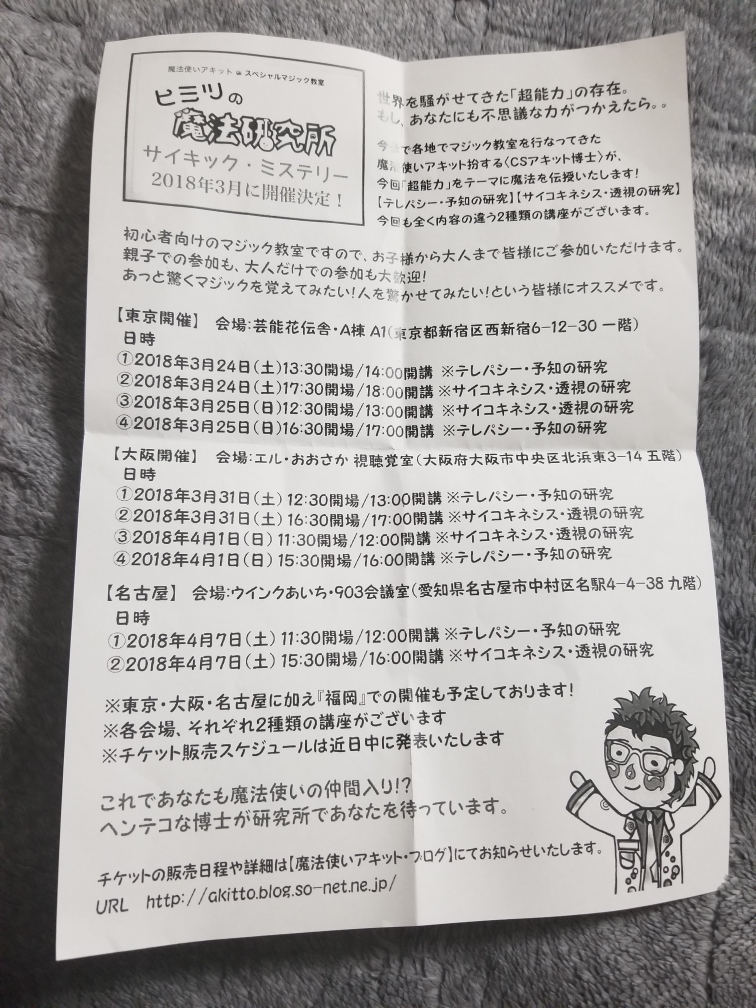 魔法使いアキット スペシャルマジック教室
ヒミツの
魔法研究所
サイキック・ミステリー
2018年3月に開催決定！
世界を騒がせてきた「超能力」の存在。
もし、あなたにも不思議な力がつかえたら。。
今まで各地でマジック教室を行なってきた
魔法使いアキット扮する〈CSアキット博士〉が、
今回「超能力」をテーマに魔法を伝授いたします！
【テレパシー・予知の研究】【サイコキネシス・透視の研究】
今回も全く内容の違う2種類の講座がございます。
初心者向けのマジック教室ですので、お子様から大人まで皆様にご参加いただけます。
親子での参加も、大人だけでの参加も大歓迎！
あっと驚くマジックを覚えてみたい！人を驚かせてみたい！という皆様にオススメです。
【東京開催】 会場：芸能花伝舎・A棟 A1（東京都新宿区西新宿6-12-30 一階）
日時
①2018年3月24日（土）13:30開場/14:00開講 ※テレパシー・予知の研究
②2018年3月24日（土）17:30開場/18:00開講 ※サイコキネシス・透視の研究
③2018年3月25日（日）12:30開場/13:00開講 ※サイコキネシス・透視の研究
④2018年3月25日（日）16:30開場/17:00開講 ※テレパシー・予知の研究
【大阪開催】 会場：エル・おおさか 視聴覚室（大阪府大阪市中央区北浜東3-14 五階）
日時
①2018年3月31日（土）12:30開場/13:00開講 ※テレパシー・予知の研究
②2018年3月31日（土）16:30開場/17:00開講 ※サイコキネシス・透視の研究
③2018年4月1日（日）11:30開場/12:00開講 ※サイコキネシス・透視の研究
④2018年4月1日（日）15:30開場/16:00開講 ※テレパシー・予知の研究
【名古屋】 会場：ウインクあいち・903会議室（愛知県名古屋市中村区名駅4-4-38 九階）
日時
①2018年4月7日（土）11:30開場/12:00開講 ※テレパシー・予知の研究
②2018年4月7日（土）15:30開場/16:00開講 ※サイコキネシス・透視の研究
※東京・大阪・名古屋に加え『福岡』での開催も予定しております！
※各会場、それぞれ2種類の講座がございます
※チケット販売スケジュールは近日中に発表いたします
これであなたも魔法使いの仲間入り!?
ヘンテコな博士が研究所であなたを待っています。
チケットの販売日程や詳細は【魔法使いアキット・ブログ】にてお知らせいたします。
URL http://akitto.blog.so-net.ne.jp/